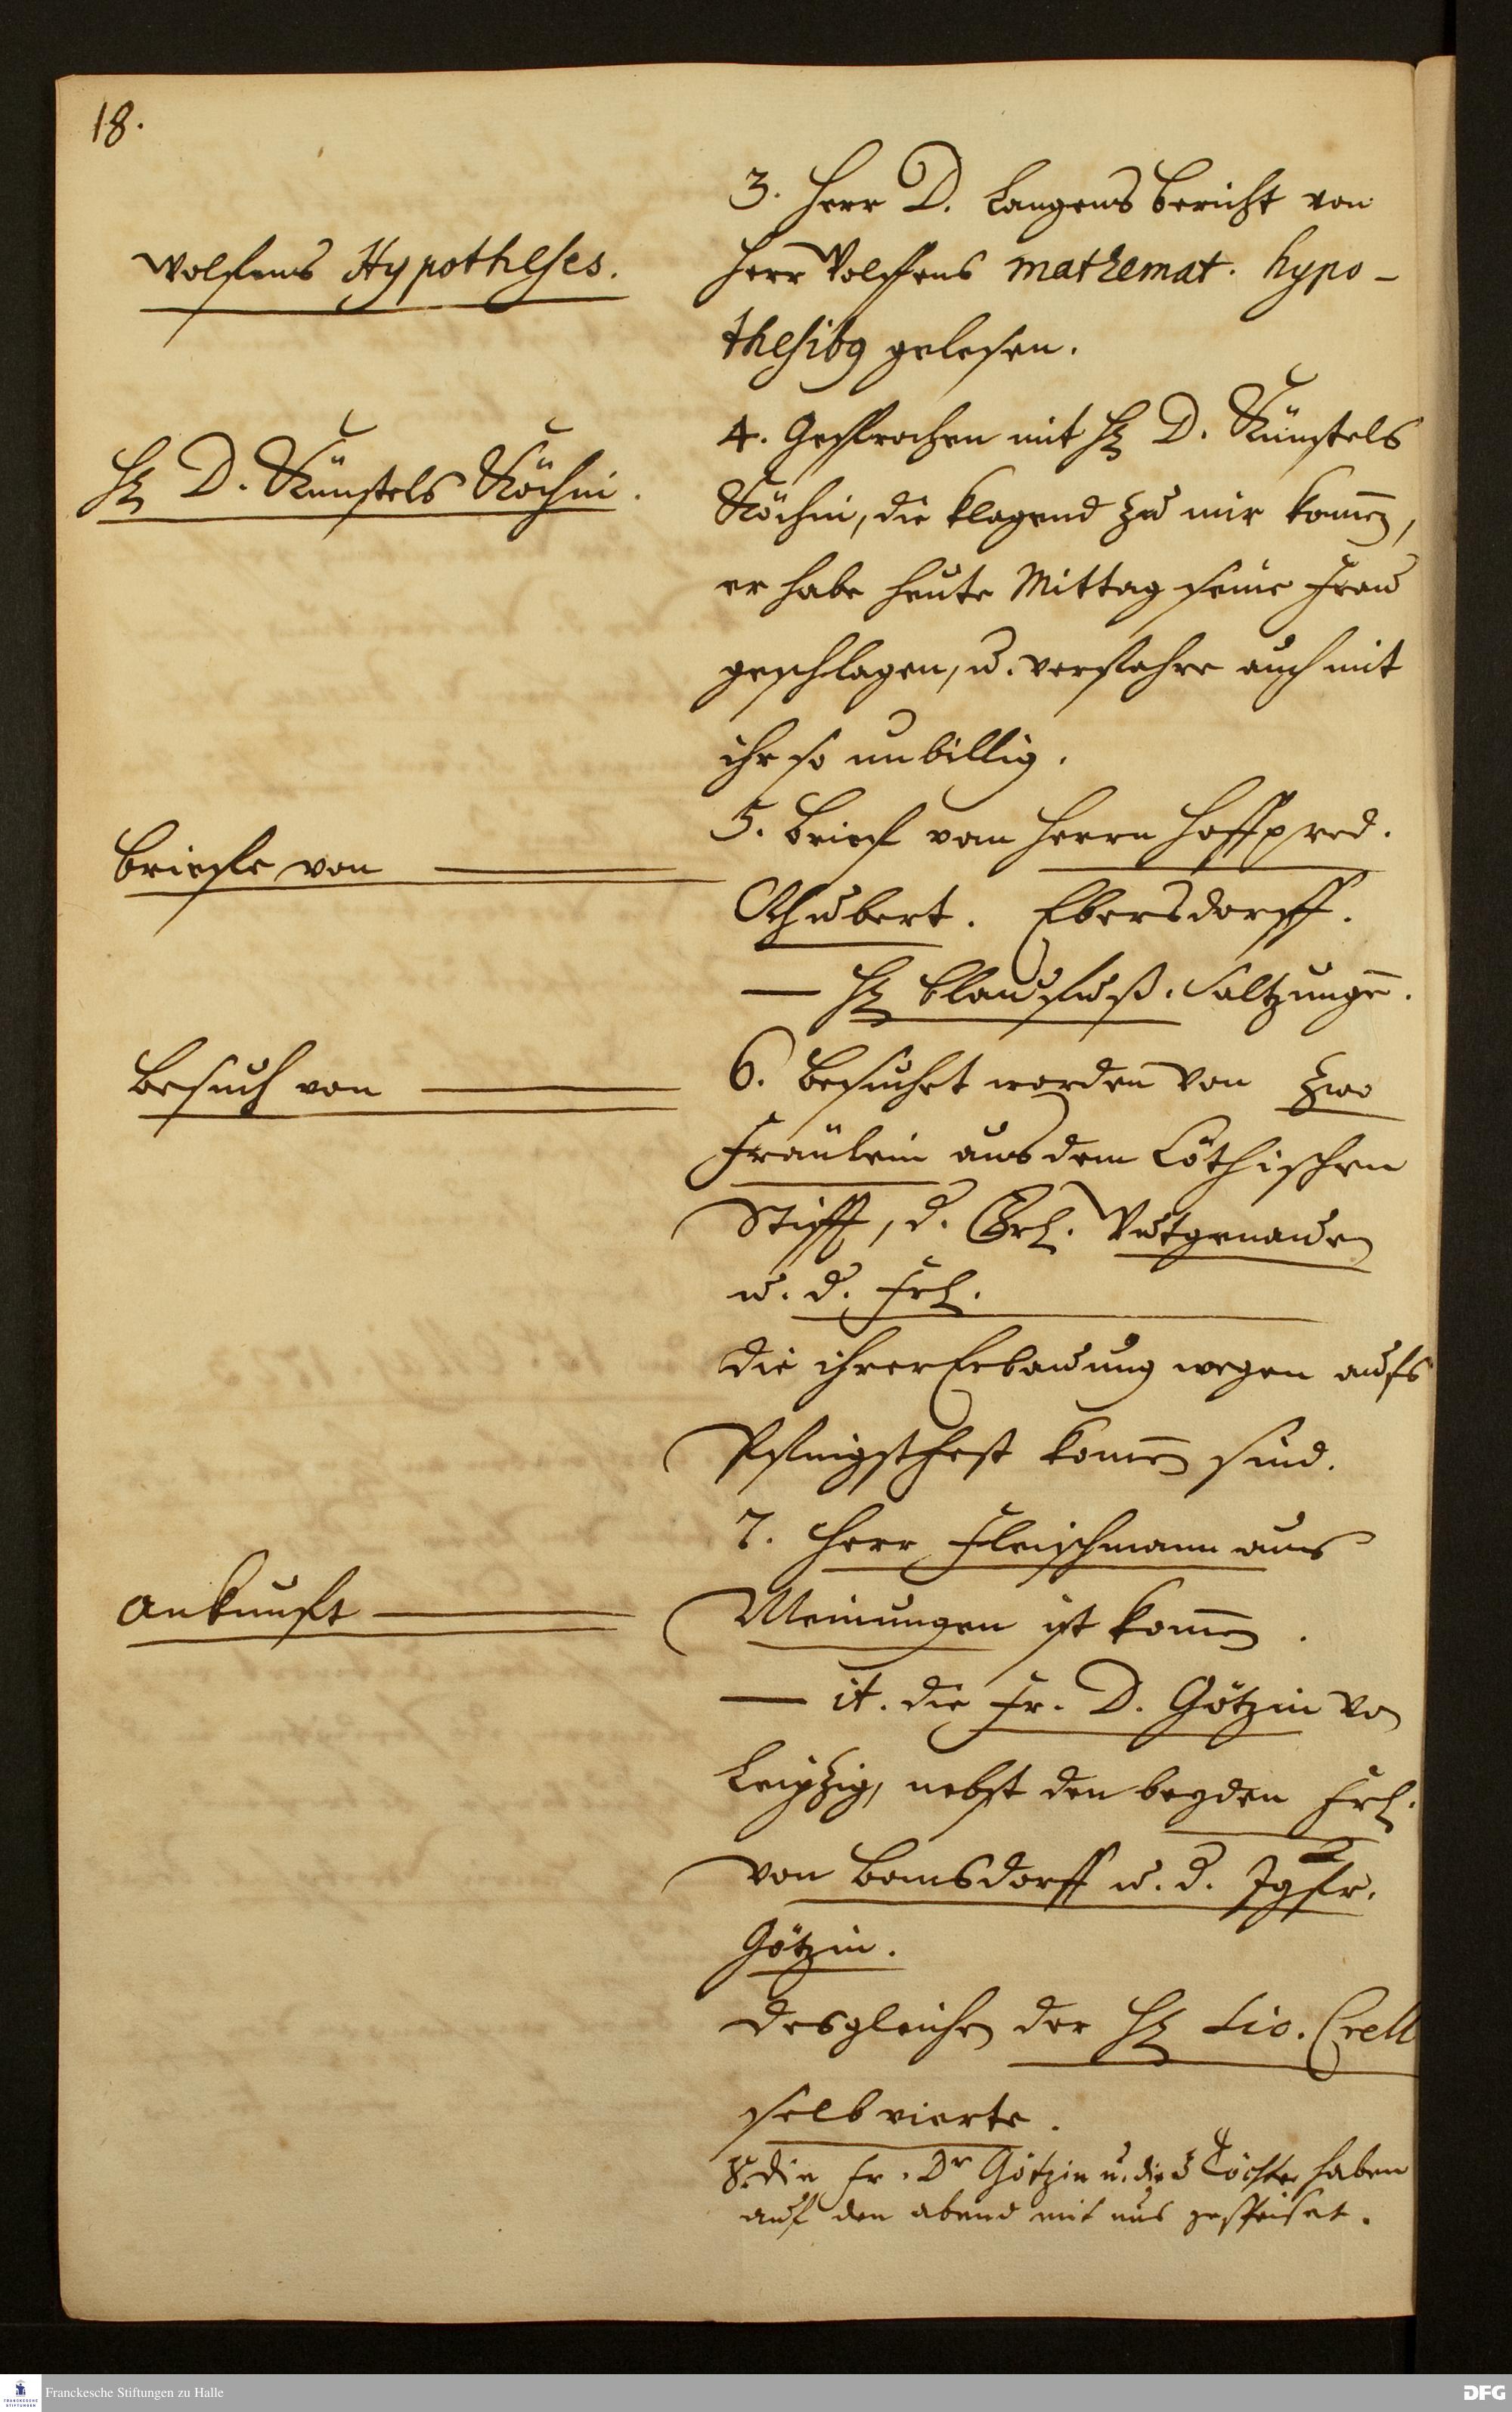 18.
3. Herr D. Langens bericht von
Wolfens Hypotheses.
Herr Wolffens mathemat. hypo-
thesib9 gelesen.
4. Gesprochen mit H. D. Künstels
H. D. Künstels Köchin.
Köchin, die klagend zu mir kom̄en,
er habe heute Mittag seine Frau
geschlagen, u. verfahre auch mit
ihr so unbillig.
5. Brief vom Herrn Hoffpred.
Briefe von
Schubert. Ebersdorff.
— H. Blaufuß. Saltzungen̄.
6. Besuchet worden von zwo
Besuch von
Fräulein aus dem Cöthischen
Stifft, d. Frl.
u. d. Frl.
die ihrer Erbauung wegen aufs
Pfingstfest kom̄en sind.
7. Herr Fleischmann aus
Ankunft
Meinungen ist kom̄en.
— it. die Fr. D. Götzin von
Leipzig, nebst den beyden Frl.
von Bomsdorff u. d. Jgfr.
Götzin.
desgleichen der H. Lic. Crell
selb vierte.
8. die Fr. Dr Götzin u. die 3 Töchter haben
auf den abend mit uns gespeiset.
Franckesche Stiftungen zu Halle
DFG